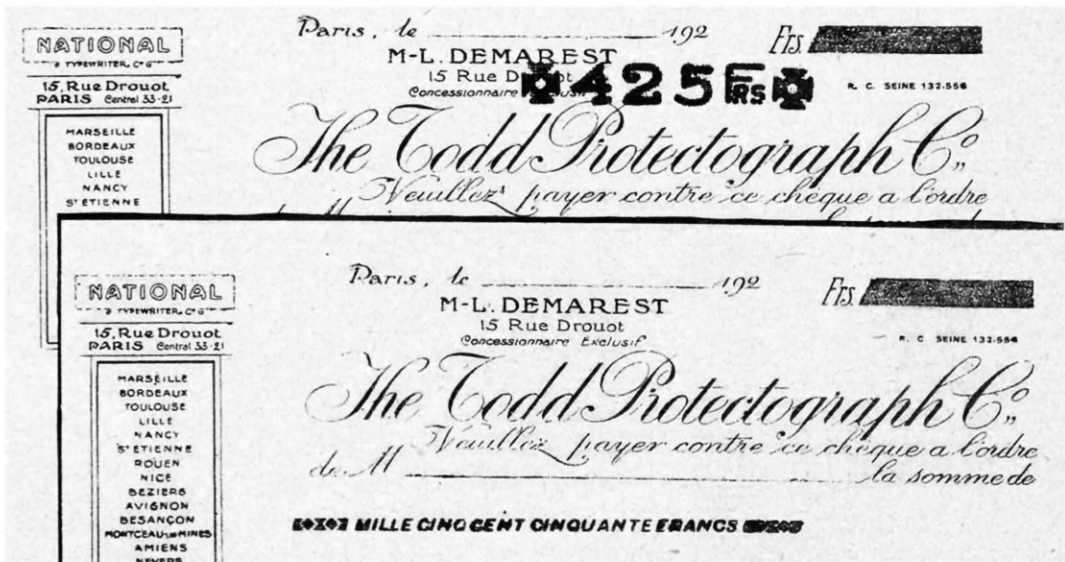 NATIONAL
& TYPEWRITER, Cº
15, Rue Drouot
PARIS Central 33-21
MARSEILLE
BORDEAUX
TOULOUSE
LILLE
NANCY
Sᵗ ETIENNE
Paris, le 192
M-L. DEMAREST
15 Rue Drouot
Concessionnaire
425 FRS
Frs.
R. C. SEINE 132.556
The Todd Protectograph Cº
Veuillez payer contre ce chèque a l'ordre
NATIONAL
& TYPEWRITER, Cº
15, Rue Drouot
PARIS Central 33-21
MARSEILLE
BORDEAUX
TOULOUSE
LILLE
NANCY
Sᵗ ETIENNE
ROUEN
NICE
BEZIERS
AVIGNON
BESANÇON
MONTCEAU-les-MINES
AMIENS
NEVERS
Paris, le 192
M-L. DEMAREST
15 Rue Drouot
Concessionnaire Exclusif
Frs.
R. C. SEINE 132.556
The Todd Protectograph Cº
Veuillez payer contre ce chèque a l'ordre
de M la somme de
MILLE CINQ CENT CINQUANTE FRANCS